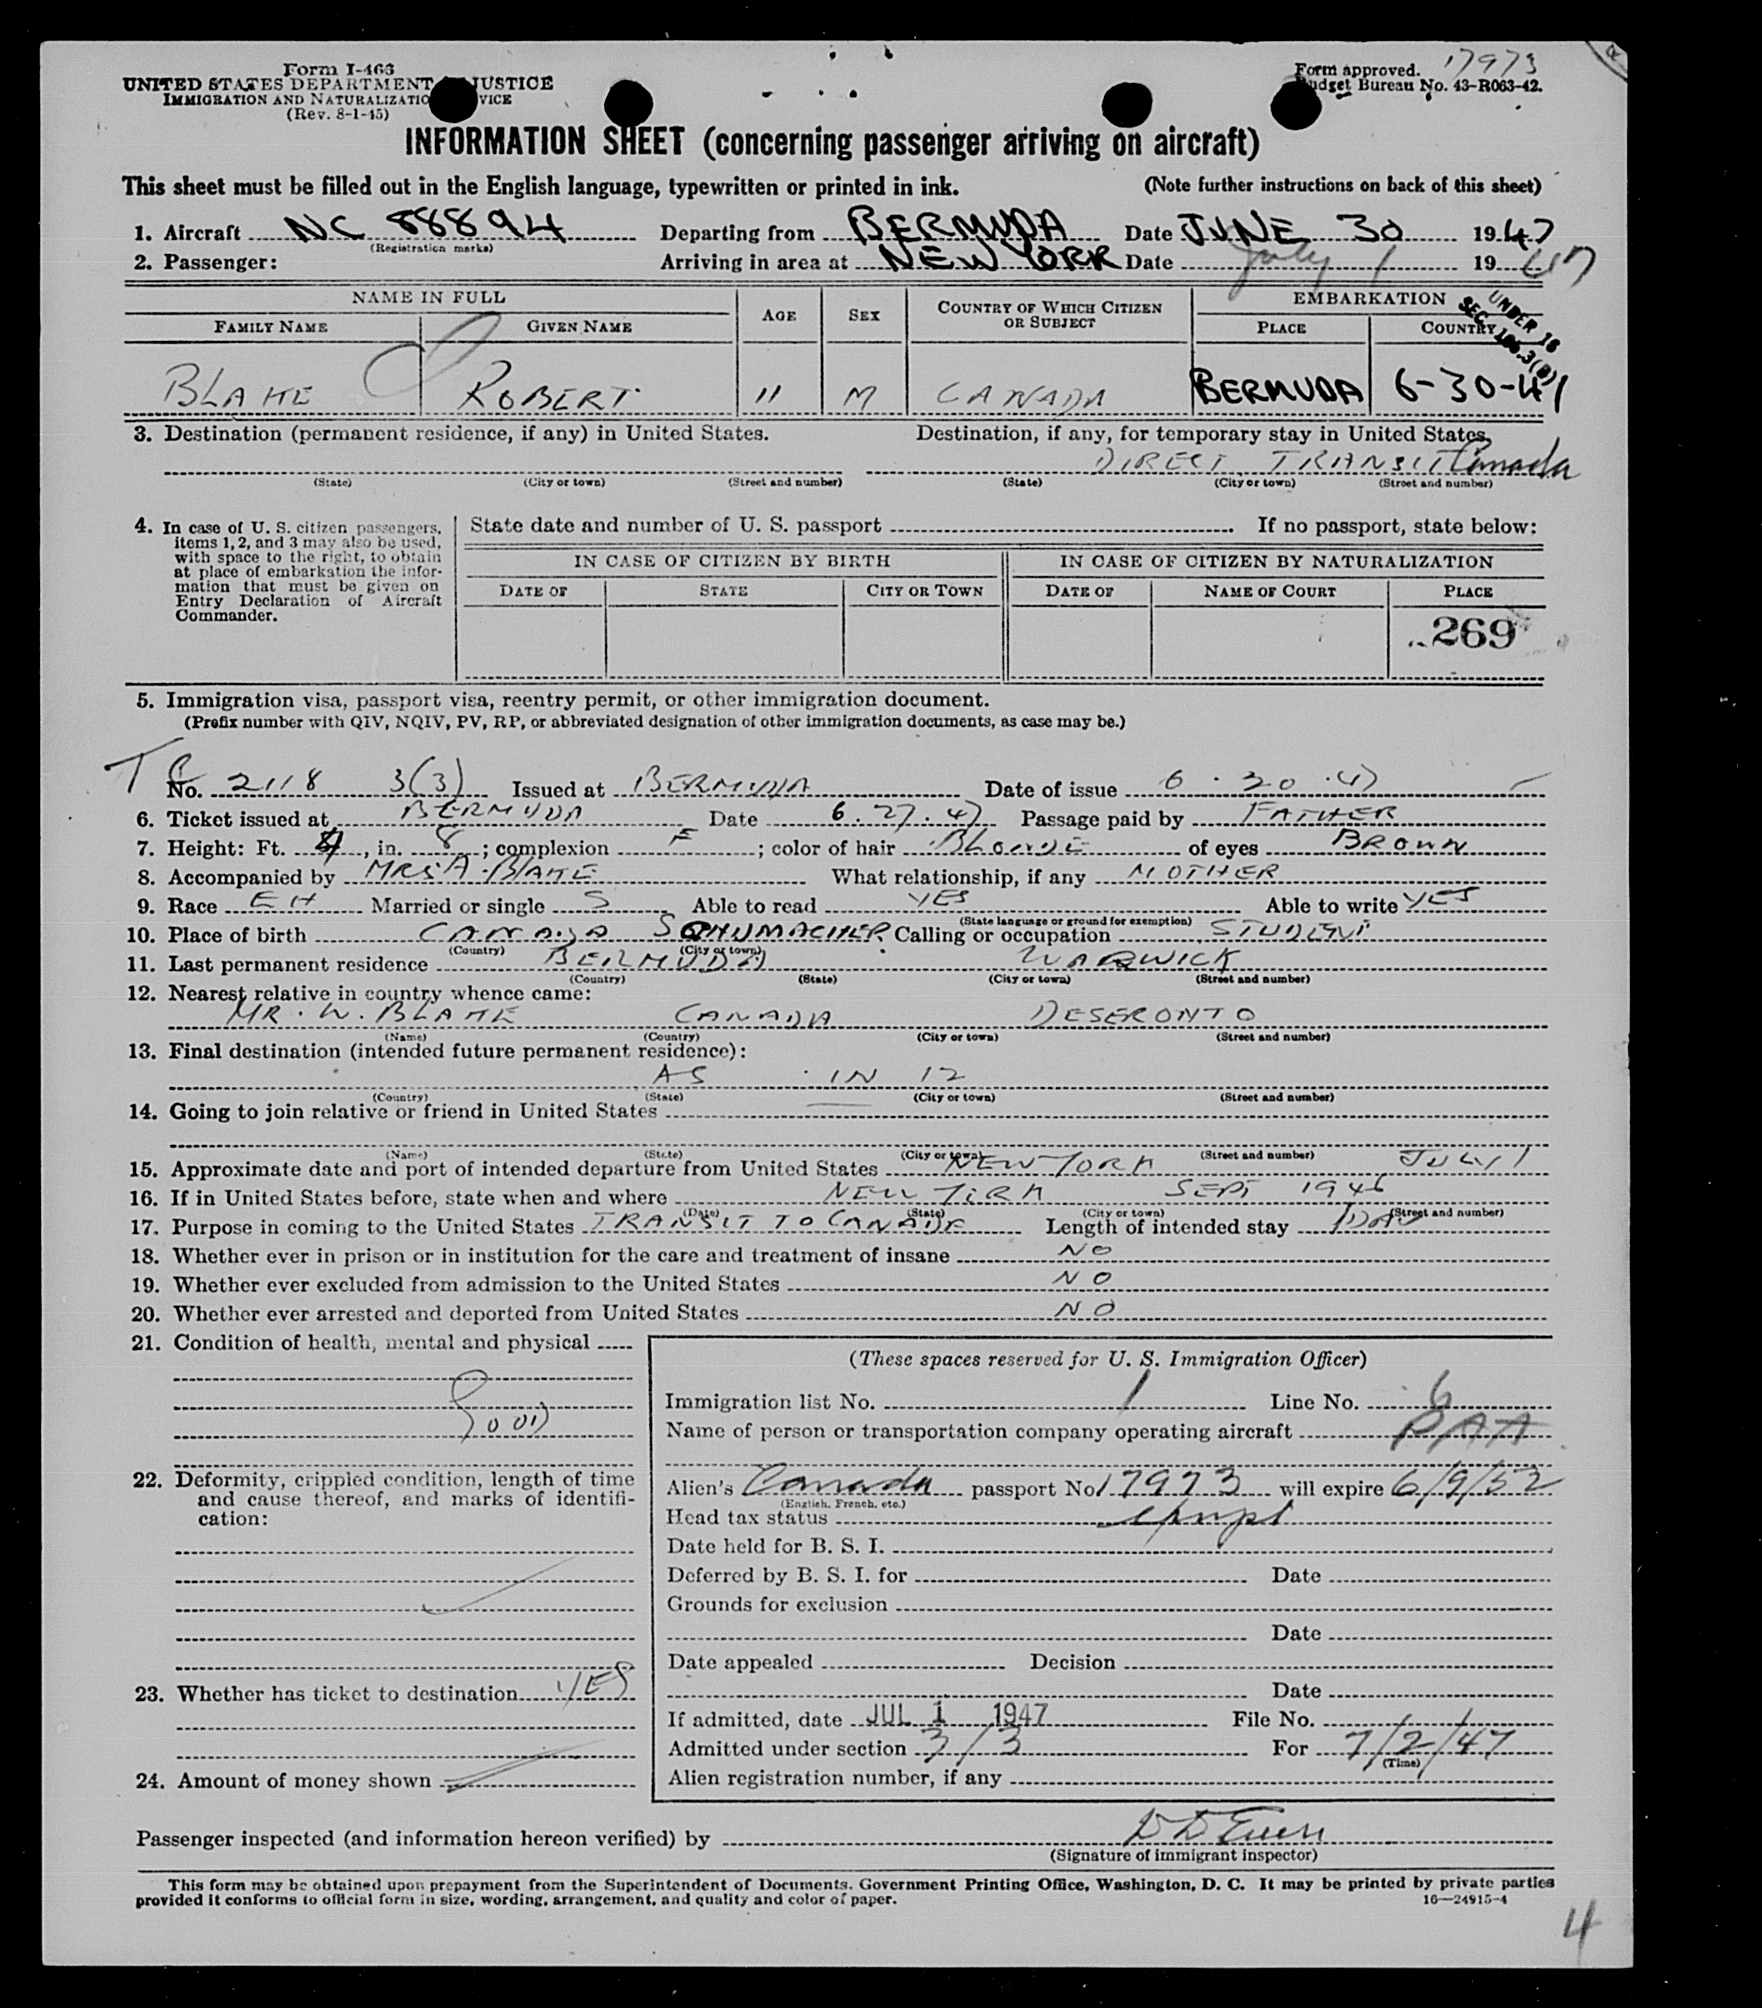 17973
Form I-466
UNITED STATES DEPARTMENT JUSTICE
IMMIGRATION AND NATURALIZATIO VICE
(Rev. 8-1-45)
Form approved.
Budget Bureau No. 43-R063-42.
INFORMATION SHEET (concerning passenger arriving on aircraft)
This sheet must be filled out in the English language, typewritten or printed in ink. (Note further instructions on back of this sheet)
1. Aircraft NC 88894 Departing from BERMUDA Date JUNE 30 1947
(Registration marks)
2. Passenger: Arriving in area at NEW YORK Date July 1 1947
NAME IN FULL AGE SEX COUNTRY OF WHICH CITIZEN OR SUBJECT EMBARKATION
FAMILY NAME GIVEN NAME PLACE COUNTRY
UNDER 16
SEC.
BLAKE ROBERT 11 M CANADA BERMUDA 6-30-47
3. Destination (permanent residence, if any) in United States. Destination, if any, for temporary stay in United States.
DIRECT TRANSIT Canada
(State) (City or town) (Street and number) (State) (City or town) (Street and number)
4. In case of U. S. citizen passengers,
items 1, 2, and 3 may also be used,
with space to the right, to obtain
at place of embarkation the infor-
mation that must be given on
Entry Declaration of Aircraft
Commander.
State date and number of U. S. passport If no passport, state below:
IN CASE OF CITIZEN BY BIRTH IN CASE OF CITIZEN BY NATURALIZATION
DATE OF STATE CITY OR TOWN DATE OF NAME OF COURT PLACE
269
5. Immigration visa, passport visa, reentry permit, or other immigration document.
(Prefix number with QIV, NQIV, PV, RP, or abbreviated designation of other immigration documents, as case may be.)
No. 2118 3(3) Issued at BERMUDA Date of issue 6.20.47
6. Ticket issued at BERMUDA Date 6.27.47 Passage paid by FATHER
7. Height: Ft. 4, in. 8; complexion F; color of hair BLONDE of eyes BROWN
8. Accompanied by MRS A. BLAKE What relationship, if any MOTHER
9. Race EH Married or single S Able to read YES Able to write YES
(State language or ground for exemption)
10. Place of birth CANADA SCHUMACHER Calling or occupation STUDENT
(Country) (City or town)
11. Last permanent residence BERMUDA WARWICK
(Country) (State) (City or town) (Street and number)
12. Nearest relative in country whence came:
MR. W. BLAKE CANADA DESERONTO
(Name) (Country) (City or town) (Street and number)
13. Final destination (intended future permanent residence):
AS IN 12
(Country) (State) (City or town) (Street and number)
14. Going to join relative or friend in United States
(Name) (State) (City or town) (Street and number)
15. Approximate date and port of intended departure from United States NEW YORK JULY 1
16. If in United States before, state when and where NEW YORK SEPT 1946
(Date) (State) (City or town) (Street and number)
17. Purpose in coming to the United States TRANSIT TO CANADA Length of intended stay 1 DAY
18. Whether ever in prison or in institution for the care and treatment of insane NO
19. Whether ever excluded from admission to the United States NO
20. Whether ever arrested and deported from United States NO
21. Condition of health, mental and physical
GOOD
22. Deformity, crippled condition, length of time
and cause thereof, and marks of identifi-
cation:
23. Whether has ticket to destination YES
24. Amount of money shown
(These spaces reserved for U. S. Immigration Officer)
Immigration list No. 1 Line No. 6
Name of person or transportation company operating aircraft PAA
Alien's Canada passport No. 17973 will expire 6/9/52
(English, French, etc.)
Head tax status exempt
Date held for B. S. I.
Deferred by B. S. I. for Date
Grounds for exclusion
Date
Date appealed Decision
Date
If admitted, date JUL 1 1947 File No.
Admitted under section 3/3 For 7/2/47
(Time)
Alien registration number, if any
Passenger inspected (and information hereon verified) by
(Signature of immigrant inspector)
This form may be obtained upon prepayment from the Superintendent of Documents, Government Printing Office, Washington, D. C. It may be printed by private parties
provided it conforms to official form in size, wording, arrangement, and quality and color of paper. 16—24915-4
4